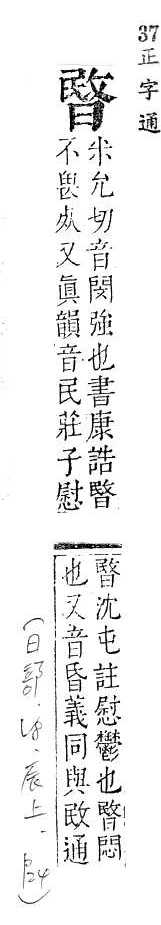 37正字通
暋
米允切音閔強也書康誥暋
不畏死又眞韻音民莊子慰
暋沈屯註慰鬱也暋悶
也又音昏義同與敃通
(日部.辰上.P24)